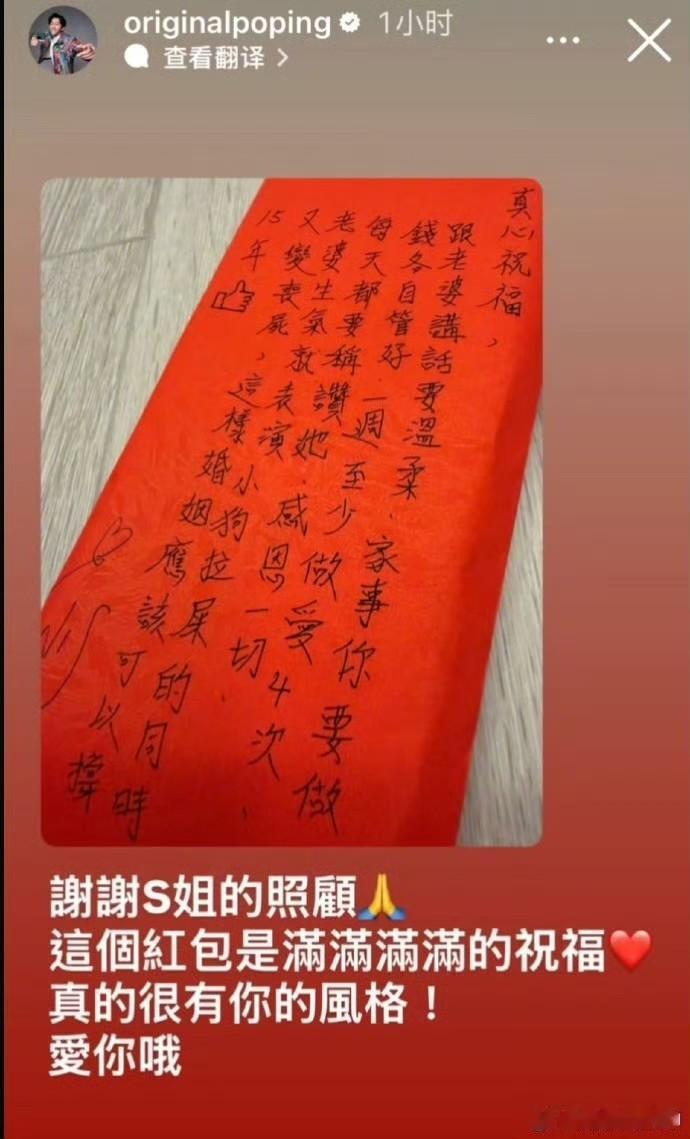 originalpoping 1小时
查看翻译
真心祝福,
跟老婆講話要溫柔、家事你要做
錢各自管好 一週至少做愛4次、
每天都要稱讚她、感恩一切、
老婆生氣就表演小狗拉屎的同時
又變喪屍,這樣婚姻應該可以撐
15年
謝謝S姐的照顧🙏
這個紅包是滿滿滿滿的祝福❤️
真的很有你的風格！
愛你哦